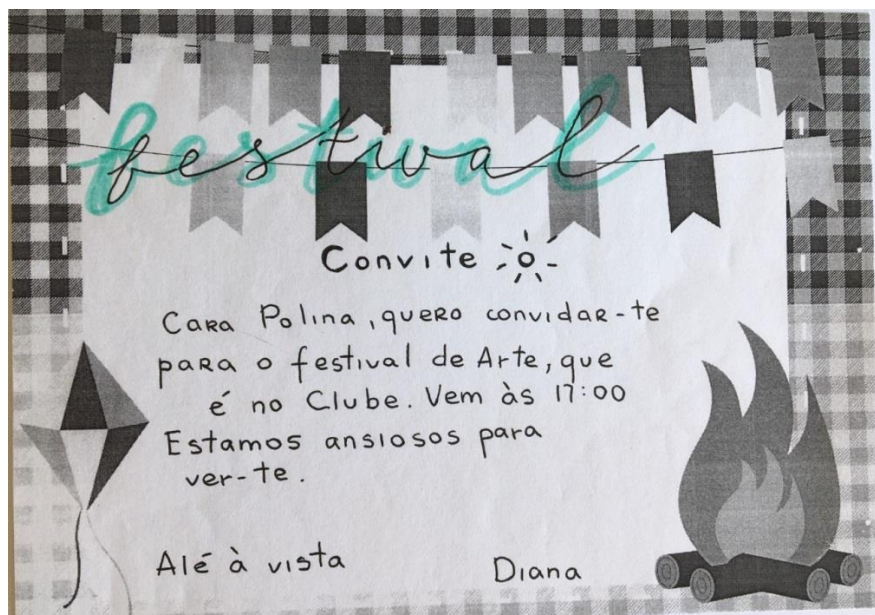 festival
Convite
Cara Polina, quero convidar-te
para o festival de Arte, que
é no Clube. Vem às 17:00
Estamos ansiosos para
ver-te.
Alé à vista
Diana